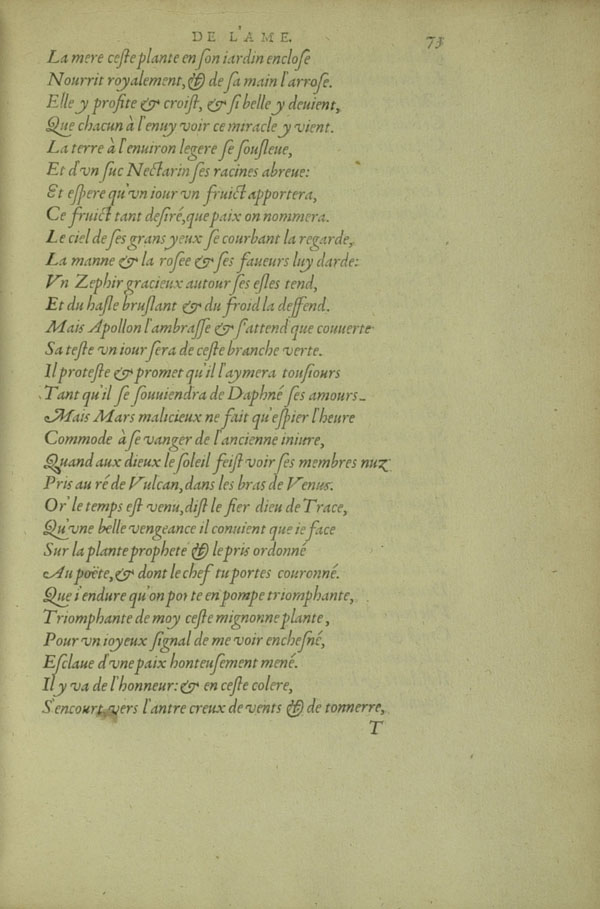 DE L'AME. 73
La mere ceſte plante en ſon iardin encloſe
Nourrit royalement, & de ſa main l'arroſe.
Elle y profite & croiſt, & ſi belle y deuient,
Que chacun à l'enuy voir ce miracle y vient.
La terre à l'enuiron legere ſe ſouſleue,
Et d'vn ſuc Nectarin ſes racines abreue:
Et eſpere qu'vn iour vn fruict apportera,
Ce fruict tant deſiré, que paix on nommera.
Le ciel de ſes grans yeux ſe courbant la regarde,
La manne & la roſee & ſes faueurs luy darde:
Vn Zephir gracieux autour ſes eſles tend,
Et du haſle bruſlant & du froid la deffend.
Mais Apollon l'ambraſſe & s'attend que couuerte
Sa teſte vn iour ſera de ceſte branche verte.
Il proteſte & promet qu'il l'aymera touſiours
Tant qu'il ſe ſouuiendra de Daphné ſes amours.
Mais Mars malicieux ne fait qu'eſpier l'heure
Commode à ſe vanger de l'ancienne iniure,
Quand aux dieux le ſoleil feiſt voir ſes membres nuz
Pris au ré de Vulcan, dans les bras de Venus.
Or' le temps eſt venu, diſt le fier dieu de Trace,
Qu'vne belle vengeance il conuient que ie face
Sur la plante prophete & le pris ordonné
Au poëte, & dont le chef tu portes couronné.
Que i'endure qu'on porte en pompe triomphante,
Triomphante de moy ceſte mignonne plante,
Pour vn ioyeux ſignal de me voir encheſné,
Eſclaue d'vne paix honteuſement mené.
Il y va de l'honneur: & en ceſte colere,
S'encourt vers l'antre creux de vents & de tonnerre,
T